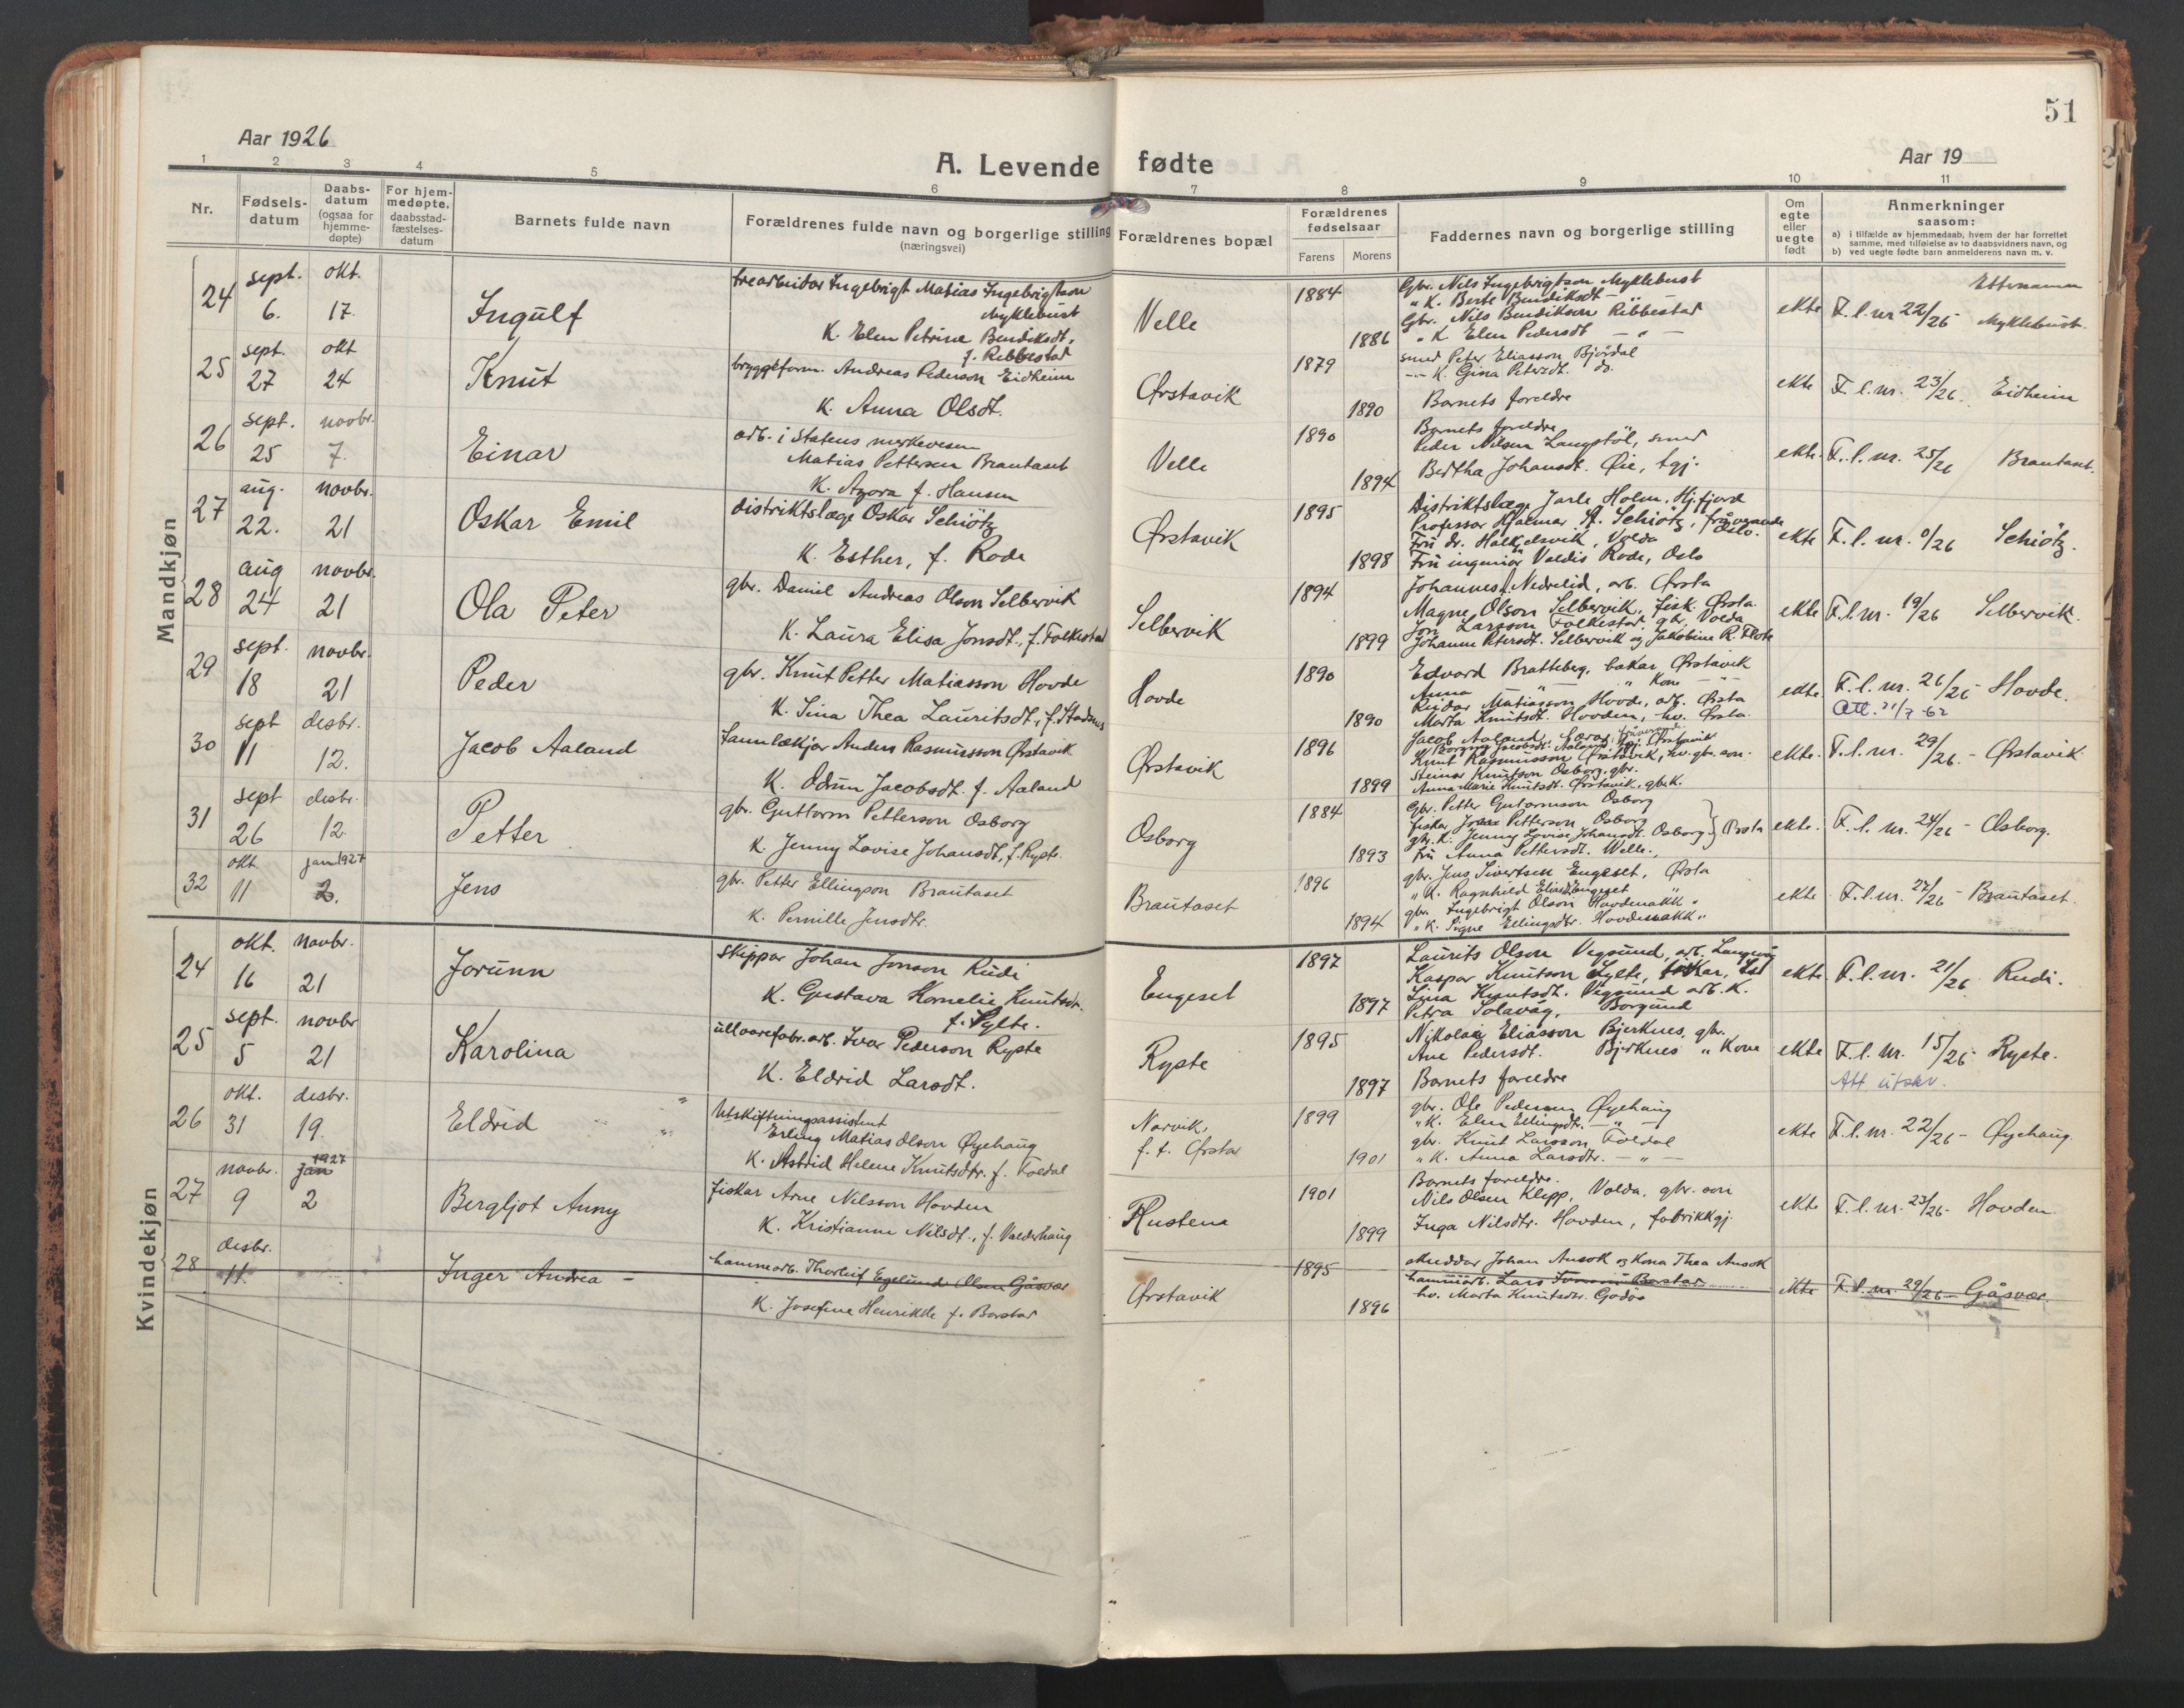 51
Aar 1926
A. Levende fødte
Aar 19
1 2 3 4 5 6 7 8 9 10 11
Nr.
Fødselsdatum
Daabsdatum (ogsaa for hjemmedøpte)
For hjemmedøpte. daabsstadfæstelsesdatum
Barnets fulde navn
Forældrenes fulde navn og borgerlige stilling (næringsvei)
Forældrenes bopæl
Forældrenes fødselsaar
Farens Morens
Faddernes navn og borgerlige stilling
Om egte eller uegte født
Anmerkninger saasom:
a) i tilfælde av hjemmedaab, hvem der har forrettet samme, med tilføielse av to daabsvidners navn, og
b) ved uegte fødte barn anmelderens navn m. v.
Mandkjøn
24 sept. 6. okt. 17. Ingulf
trearbeidar Ingebrigt Matias Ingebrigtson Myklebust
K. Elen Petrine Bendiksdt. f. Ribbestad
Velle 1884 1886
Gbr. Nils Ingebrigtson Myklebust
" K. Berte Bendiksdt —
Gbr. Nils Bendikson Ribbestad
" K Elen Pedersdt — " —
ekte F. l. nr 22/26 - Etternamn Myklebust
25 sept. 27 okt 24 Knut
bryggeform. Andreas Pederson Eidheim
K. Anna Olsdt.
Ørstavik 1879 1890
smed Peter Eliasson Bjørdal
— K. Gina Petersdt. do.
Barnets foreldre
ekte F. l. nr. 23/26. Eidheim
26 sept. 25 novbr. 7. Einar
arb. i Statens merkevesen
Matias Pettersen Brautaset
K. Azora f. Hansen
Velle 1890 1894
Barnets foreldre
Peder Nilsen Langstöl, smed
Bertha Johansdt. Øie, tgj.
ekte. F. l. nr. 25/26 Brautaset.
27 aug. 22. novbr. 21 Oskar Emil
distriktslæge Oskar Schiötz
K. Esther, f. Rode
Ørstavik 1895 1898
Distriktslæge Jarle Holm, Hj.fjord
Professor Hjalmar A. Schiötz, fråverande Oslo.
Frü dr. Halkjelsvik, Volda
Frü ingeniör Valdis Rode, Oslo
ekte F. l. nr. 0/26 Schiötz.
28 aug 24 novbr. 21 Ola Peter
gbr. Daniel Andreas Olson Selbervik
K. Laura Elisa Jonsdt., f. Folkestad
Selbervik 1894 1899
Johannes Nedrelid, arb. Ørsta
Magne Olson Selbervik, fisk. Ørsta.
Jon Larsson Folkestad, gbr, Volda
Johanne Petersdt. Selbervik og Jakobine R. Flote
ekte F. l. nr. 19/26 Selbervik.
29 sept. 18 novbr. 21 Peder
gbr. Knut Petter Matiasson Hovde
K. Sina Thea Lauritsdt., f. Stadsnes
Hovde 1890 1890
Edvard Bratteberg, bakar Ørstavik
Anna " — " Kone — " —
Reidar Matiasson Hovde, arb. Ørsta
Marta Knutsdt. Hovden, hv. Ørsta.
ekte. F. l. nr. 26/26 - Hovde.
Att. 21/7 - 62
30 sept 11 desbr. 12. Jacob Aaland
tannlækjar Anders Rasmusson Ørstavik
K. Odrun Jacobsdt. f. Aaland
Ørstavik 1896 1899
Jacob Aaland,
Borgny Jacobsdt. Aaland,
Knut Rasmusson Ørstavik, hv. gbr. son.
Steinar Knutson Osborg, gbr.
Anna Marie Knutsdt. Ørstavik, gbr.K.
ekte. F. l. nr. 29/26. - Ørstavik
31 sept 26 desbr. 12. Petter
gbr. Guttorm Petterson Osborg
K. Jenny Lovise Johansdt, f. Ryste.
Osborg 1884 1893
Gbr. Petter Gutormson Osborg
fiskar Petterson Osborg
gbr. K. Jenny Lovise Johansdt. Osborg } Ørsta
frü Anna Pettersdt. Welle.,
ekte. F. l. nr. 24/26 - Osborg.
32 okt. 11 jan 1927 2. Jens
gbr. Petter Ellingson Brautaset
K. Pernille Jensdtr.
Brautaset 1896 1894
gbr. Jens Sivertsen Engeset, Ørsta
" K. Ragnhild Eliasdt Engeset "
gbr. Ingebrigt Olson Hovdenakk "
" K. Signe Ellingsdtr. Hovdenakk "
ekte. F. l. nr. 27/26 - Brautaset.
Kvindekjøn
24 okt. 16 novbr. 21 Jorunn
skippar Johan Jonson Rudi
K. Gustava Kornelie Knutsdt. f. Sylte.
Engeset 1897 1897
Laurits Olson Vegsund, arb. Langevåg
Kaspar Knutson Sylte, fiskar,
Lina Knutsdt. Vegsund arb. K.
Petra Solavåg, Borgund
ekte. F. l. nr. 21/26 Rudi.
25 sept. 5 novbr 21 Karolina
ullvarefabr. arb. Ivar Pederson Ryste
K. Eldrid Larsdt.
Ryste 1895 1897
Nikolai Eliasson Bjerknes, gbr.
Ane Pedersdt. Bjerknes " Kone
Barnets foreldre
ekte F. l. nr. 15/26 - Ryste.
Att utskr.
26 okt. 31 desbr. 19. Eldrid
Utskiftningsassistent
Erling Matias Olson Øyehaug
K. Astrid Helene Knutsdtr. f. Foldal
Narvik, f. t. Ørsta 1899 1901
gbr. Ole Pedersen Øyehaug
" K. Elen Ellingsdt. — " —
gbr. Knut Larsson Foldal
" K. Anna Larsdtr. — " —
ekte F. l. nr. 22/26 - Øyehaug.
27 novbr. 9 1927 jan 2 Bergljot Anny
fiskar Arne Nilsson Hovden
K. Kristianne Nilsdt., f. Valderhaug
Rustene 1901 1899
Barnets foreldre.
Nils Olsen Klepp, Volda, gbr. son
Inga Nilsdtr. Hovden, fabrikkgj.
ekte F. l. nr. 23/26 - Hovden.
28 desbr. 11. Inger Andrea —
hamnearb. Thorleif Egelund Olsen Gåsvær
K. Josefine Henrikke f. Borstad
Ørstavik 1895 1896
skreddar Johan Aasok og kona Thea Aasok
Lars Borstad
hv. Marta Knutsdtr. Godøs
ekte F. l. nr 29/26 - Gåsvær.